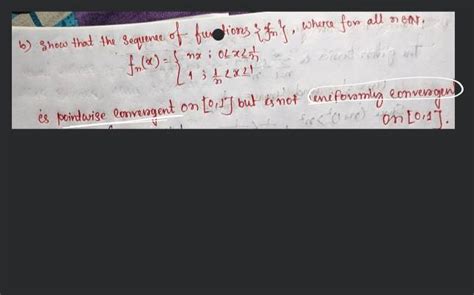 b) Show that the sequence of functions {fn}, where for all n∈N.
fn(x) = { nx ; 0<x<1/n
1 ; 1/n<x<1
is pointwise convergent on [0,1] but is not uniformly convergent
on [0,1].